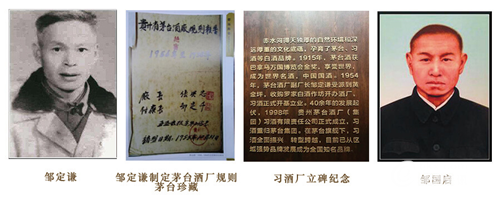 赤水河得天独厚的自然环境和深
远厚重的文化底蕴，孕育了茅台、习
酒等白酒品牌。1915年，茅台酒在
巴拿马万国博览会金奖，享誉世界，
成为世界名酒，中国国酒。1954
年，茅台酒厂副厂长邹定谦受派到黄
金坪，收购罗家白酒作坊开办酒厂，
习酒正式开基立业。40余年的发展起
伏，1998年，贵州茅台酒厂（集
团）习酒有限责任公司正式成立，习
酒重归茅台集团。在茅台旗下，习酒
全面振兴，转型跨越，目前已从区
域强势品牌发展成为全国知名品牌。
邹定谦
邹定谦制定茅台酒厂规则
茅台珍藏
习酒厂立碑纪念